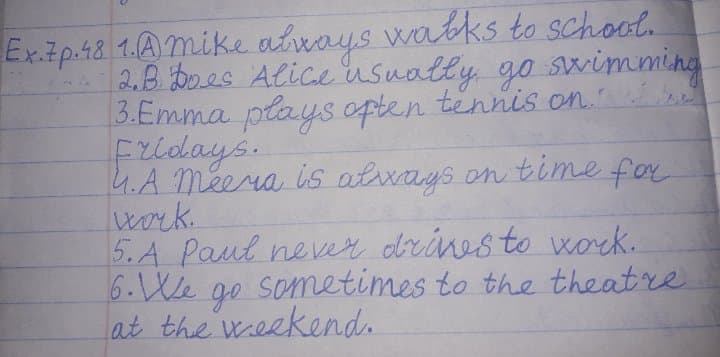 Ex.7p.48 1.Ⓐ Mike always walks to school.
2.B Does Alice usually go swimming
3.Emma plays often tennis on
Fridays.
4.A Meera is always on time for
work.
5.A Paul never drives to work.
6.We go sometimes to the theatre
at the weekend.